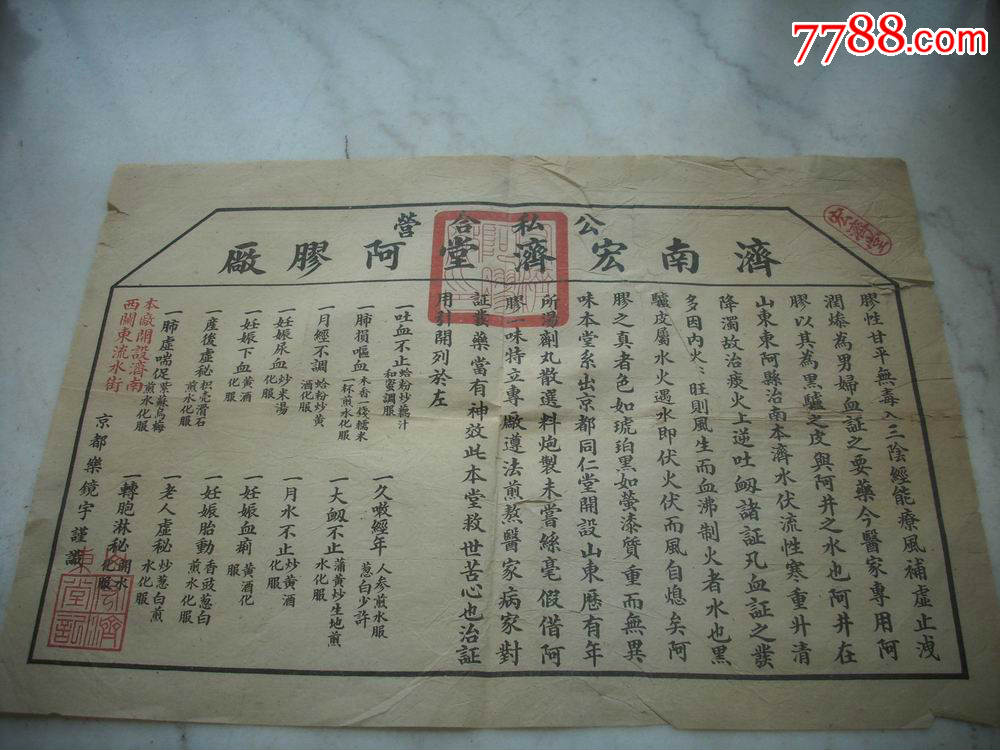 7788.com
公私合營
濟南宏濟堂阿膠廠
宏濟堂
膠性甘平無毒入三陰經能療風補虛止洩
潤燥為男婦血証之要藥今醫家專用阿
膠以其為黑驢之皮與阿井之水也阿井在
山東東阿縣治南本濟水伏流性寒重升清
降濁故治痰火上逆吐衂諸証凡血証之發
多因內火火旺則風生而血沸制火者水也黑
驢皮屬水火遇水即伏火伏而風自熄矣阿
膠之真者色如琥珀黑如瑩漆質重而無異
味本堂系出京都同仁堂開設山東歷有年
所湯劑丸散選料炮製未嘗絲毫假借阿
膠一味特立專廠遵法煎熬醫家病家對
証發藥當有神效此本堂救世苦心也治証
用引開列於左
一吐血不止蛤粉炒藕汁和蜜調服
一久嗽經年人參煎水服葱白少許
一肺損嘔血木香一錢糯米一杯煎水化服
一大衂不止蒲黃炒生地煎水化服
一月經不調蛤粉炒黃酒化服
一月水不止炒黃酒服
一妊娠尿血炒米湯化服
一妊娠血痢黃酒化服
一妊娠下血黃酒化服
一妊娠胎動香豉葱白煎水化服
一產後虛秘枳壳滑石煎水化服
一老人虛秘炒葱白煎水化服
一肺虛喘促紫蘇烏梅煎水化服
一轉胞淋秘開水化服
本廠開設濟南
西關東流水街
京都樂鏡宇謹識